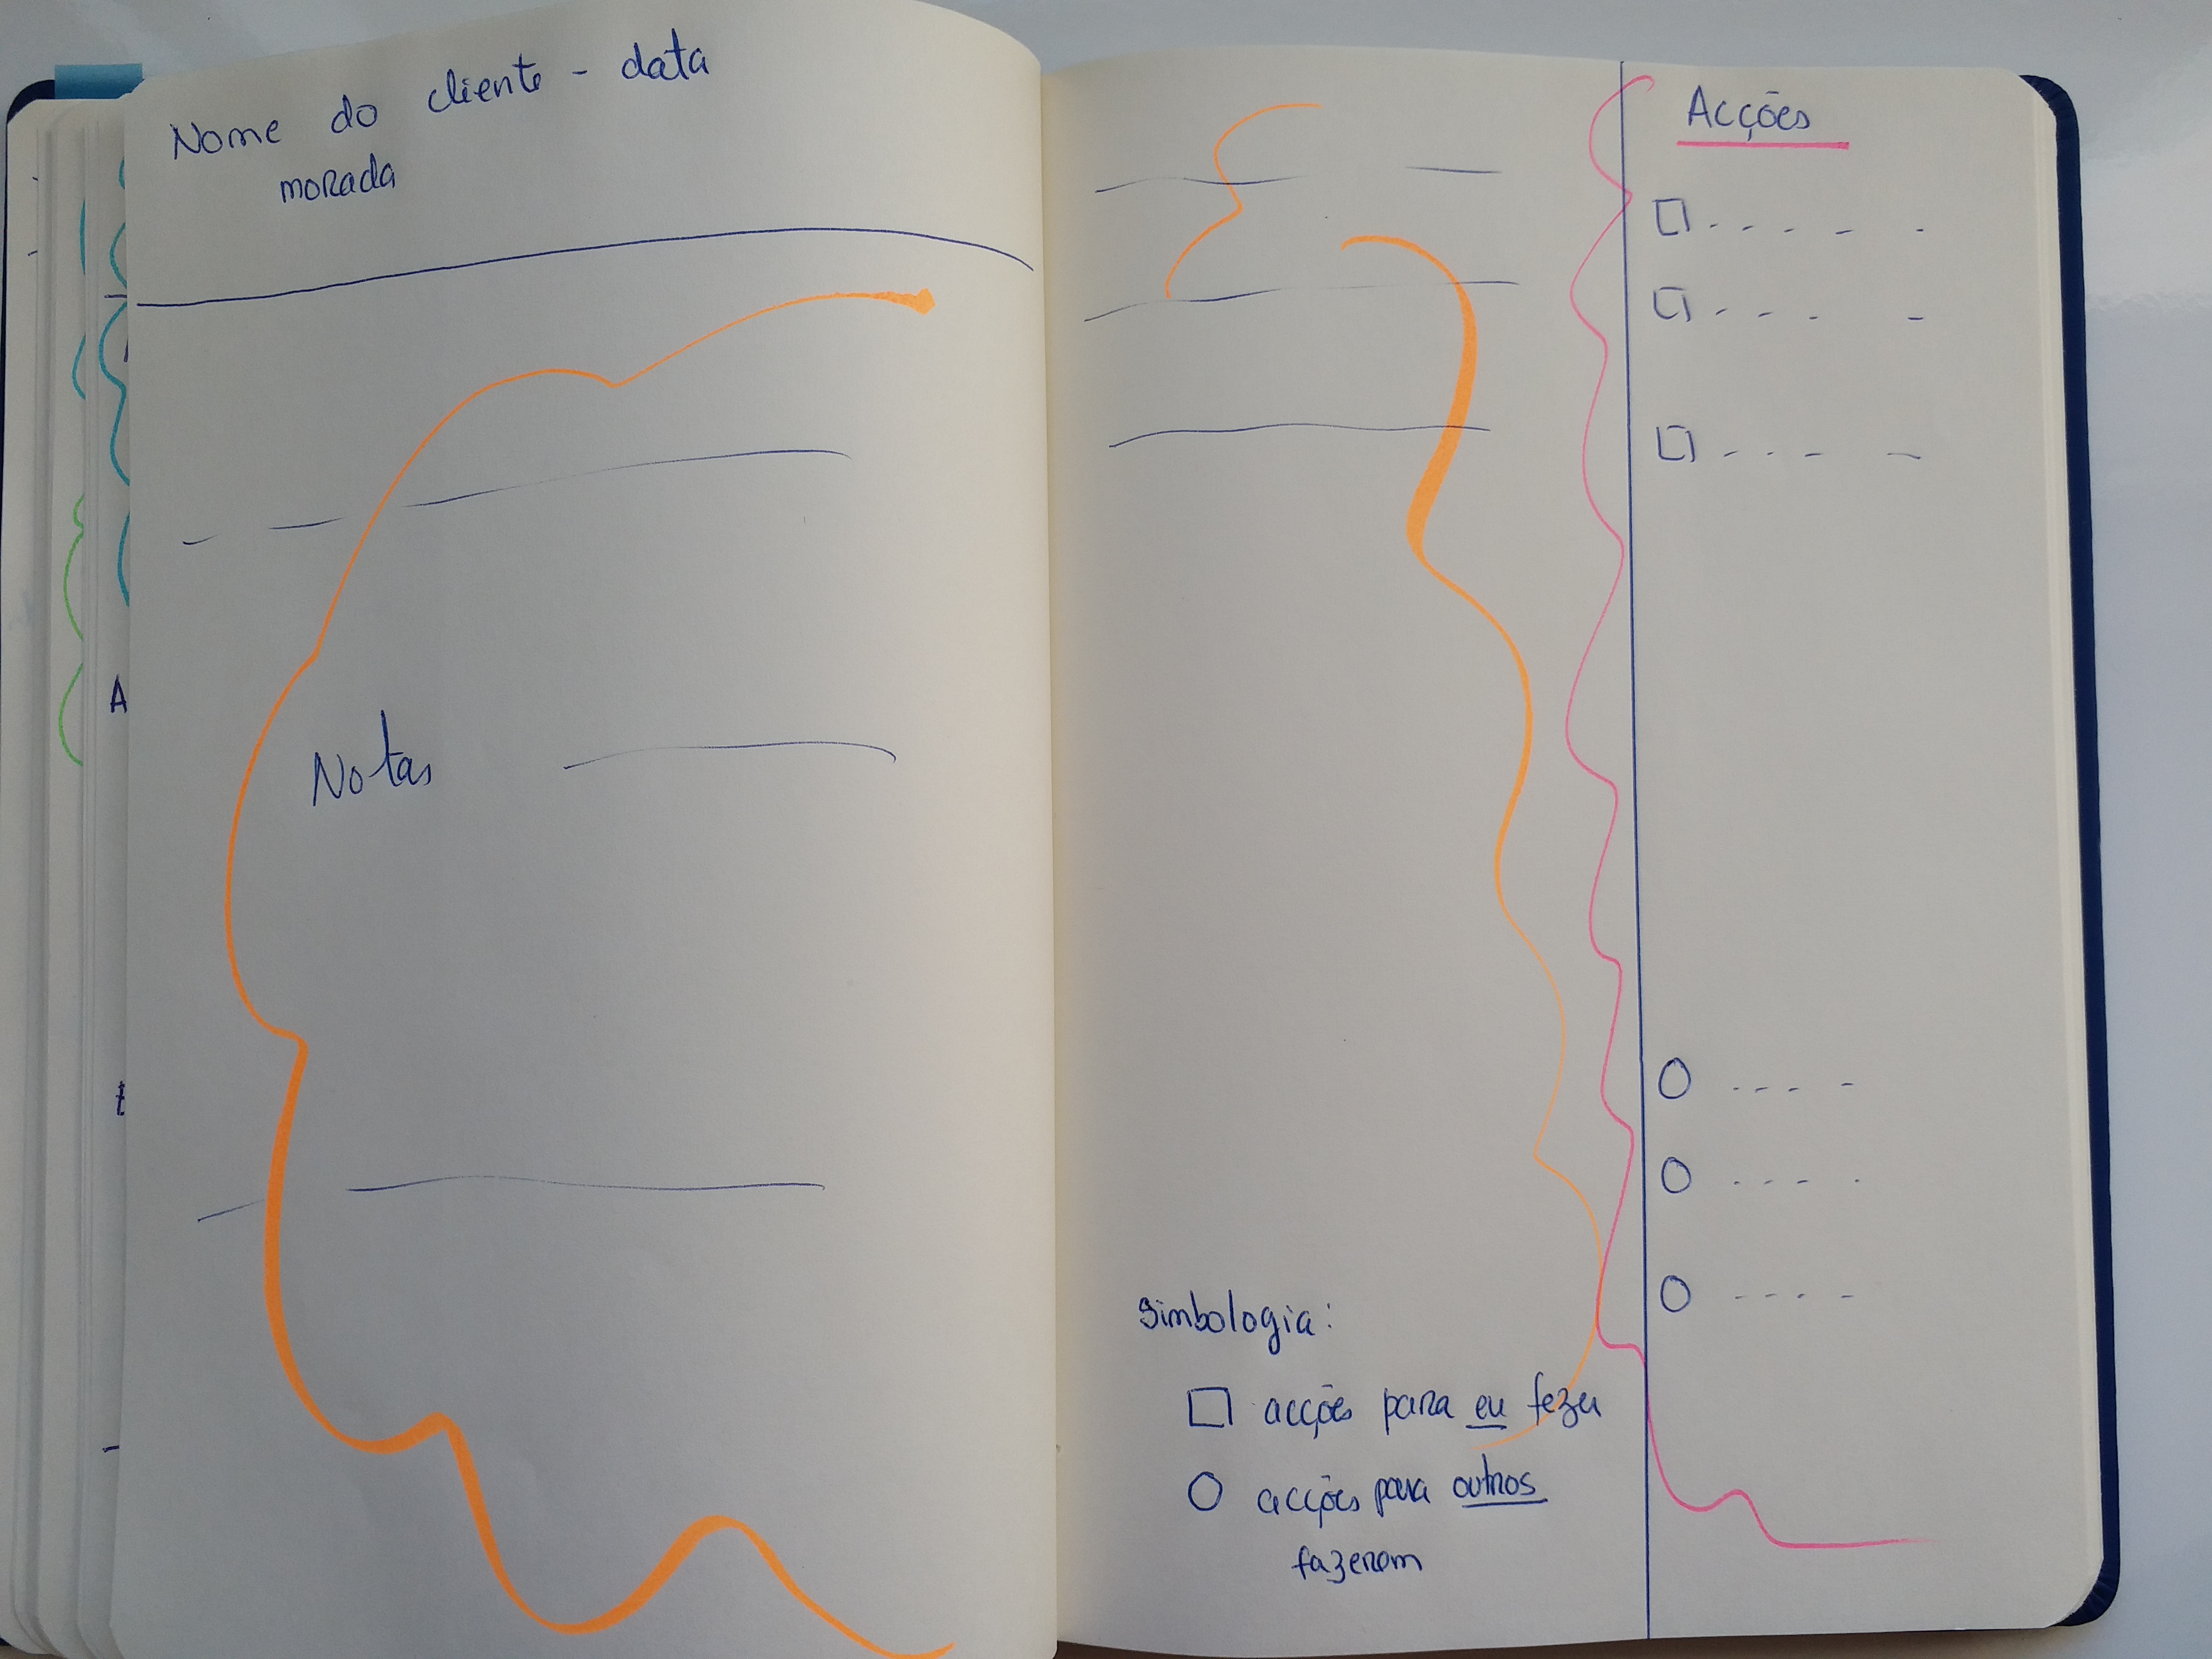 Nome do cliente - data
morada
Notas
Acções
Simbologia:
acções para eu fazer
acções para outros
fazerem
A
t